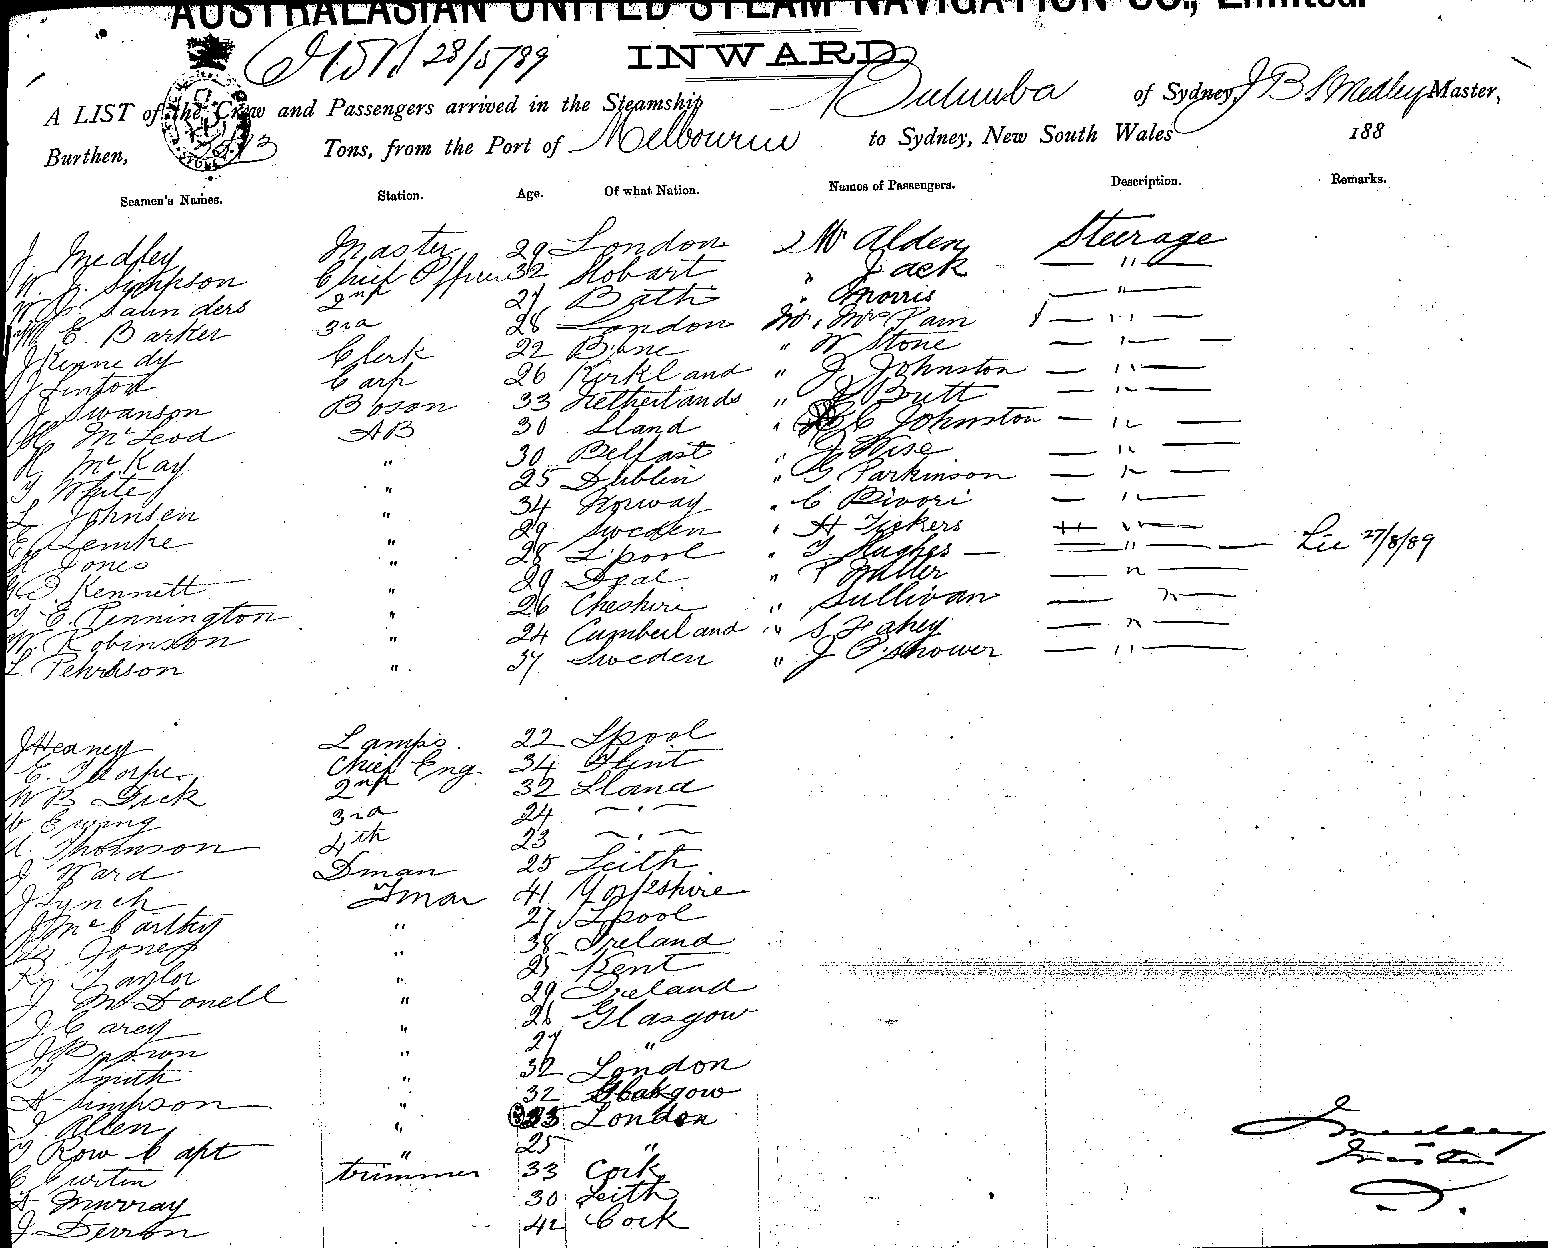 AUSTRALASIAN UNITED STEAM NAVIGATION CO., Limited.
28/5/89 INWARD.
A LIST of the Crew and Passengers arrived in the Steamship of Sydney, J B S Medley Master,
Burthen, Tons, from the Port of Melbourne to Sydney, New South Wales 188
Seamen's Names. Station. Age. Of what Nation. Names of Passengers. Description. Remarks.
J Medley Master 29 London 2 Mr Alden Steerage
W. J. Simpson Chief Officer 32 Hobart " Jack — " —
Saunders 2nd 27 Bath " Morris — " —
E. Barker 3rd 28 London — " —
J Kennedy Clerk 22 " W Stone — " —
J Linton Carp 26 Kirkland " J Johnston — " —
J Swanson Boson 33 Netherlands " J Butt — " —
McLeod AB 30 Sland " C Johnston — " —
H McKay " 30 Belfast " J Wise — " —
T White " 25 Dublin " G Parkinson — " —
L Johnsen " 34 Norway " C Rivori — " —
E Lemke " 29 Sweden " H Tickers — " —
H Jones " 28 L'pool " T Hughes — " — 27/8/89
Kennett " 29 Deal " Miller — " —
T. E. Pennington " 26 Cheshire " Sullivan — " —
W. Robinson " 24 Cumberland " S Fahey — " —
L " 37 Sweden " J — " —
J Heaney Lamps. 22 Lpool
E. Thorpe Chief Eng. 34 Flint
W B Dick 2nd 32 Sland
W Ewing 3rd 24 — " —
A. Thomson 4th 23 — " —
J Ward Dman 25 Leith
J Lynch Fman 41 Yorkshire
J McCarthy " 27 Lpool
Jones " 38 Ireland
R Taylor " 25 Kent
J McDonell " 29 Ireland
J. Carey " 26 Glasgow
J Brown " 27 "
T Smith " 32 London
A Simpson " 32 Glasgow
J Allen " London
T Row " 25 "
C Curtin trimmer 33 Cork
A Murray 30 Leith
J. 42 Cork
J Medley
Master